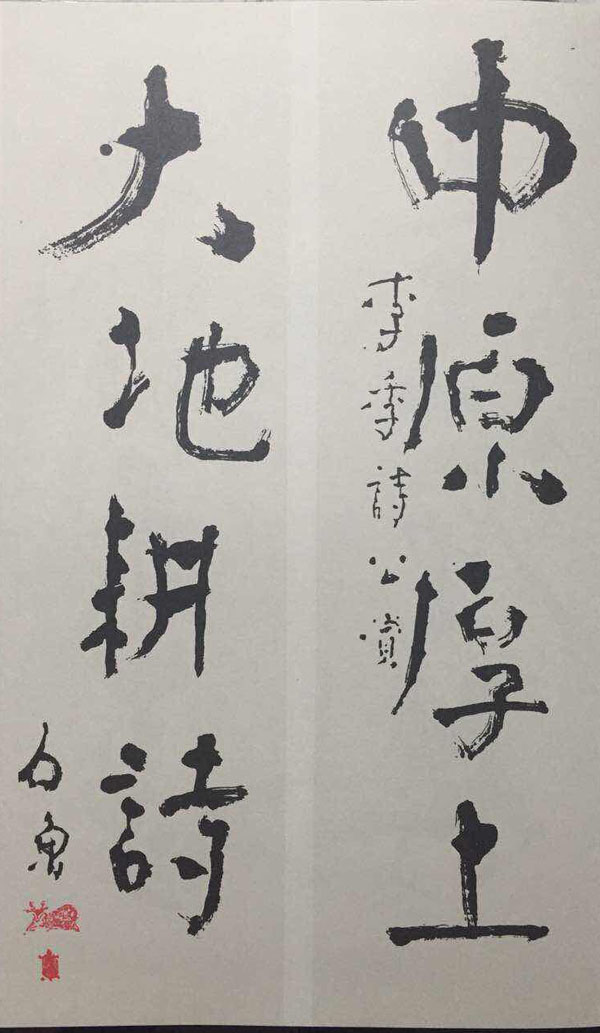 中原厚土
李季詩公賞
大地耕詩
石魯